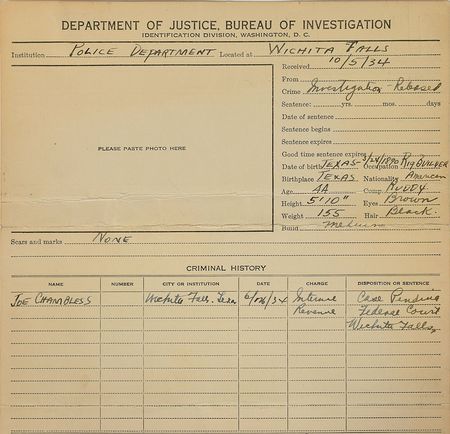 DEPARTMENT OF JUSTICE, BUREAU OF INVESTIGATION
IDENTIFICATION DIVISION, WASHINGTON, D. C.
Institution POLICE DEPARTMENT Located at WICHITA FALLS
Received 10/5/34
From
Crime Investigation - Released
Sentence: yrs. mos. days
Date of sentence
Sentence begins
Sentence expires
Good time sentence expires
PLEASE PASTE PHOTO HERE
Date of birth TEXAS - 3/24/1890 Occupation RIG BUILDER
Birthplace TEXAS Nationality American
Age 44 Comp. RUDDY
Height 5'10" Eyes Brown
Weight 155 Hair Black.
Build medium
Scars and marks NONE
CRIMINAL HISTORY
NAME NUMBER CITY OR INSTITUTION DATE CHARGE DISPOSITION OR SENTENCE
JOE CHAMBLESS Wichita Falls. Texas 34 Internal Case Pending
Revenue Federal Court
Wichita Falls,